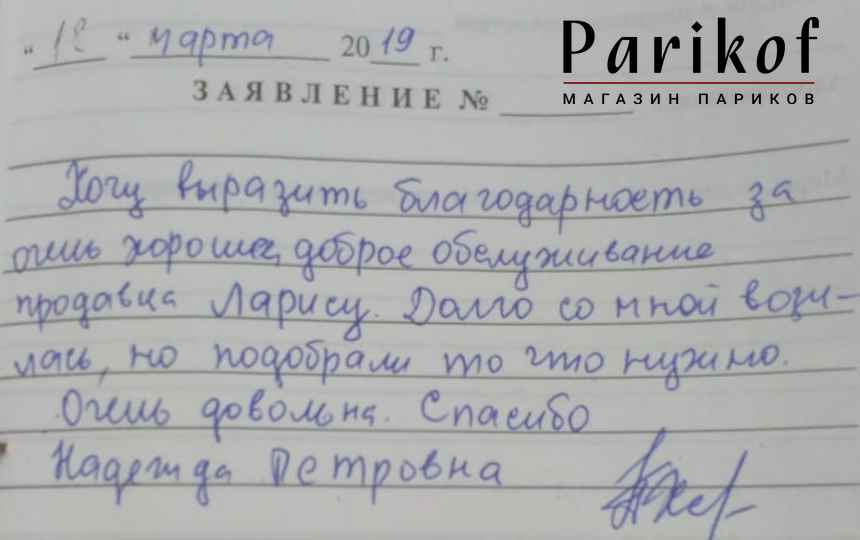 " 12 " марта 2019 г.
Parikof
МАГАЗИН ПАРИКОВ
ЗАЯВЛЕНИЕ №
Хочу выразить благодарность за
очень хорошее, доброе обслуживание
продавца Ларису. Долго со мной вози-
лась, но подобрали то что нужно.
Очень довольна. Спасибо
Надежда Петровна